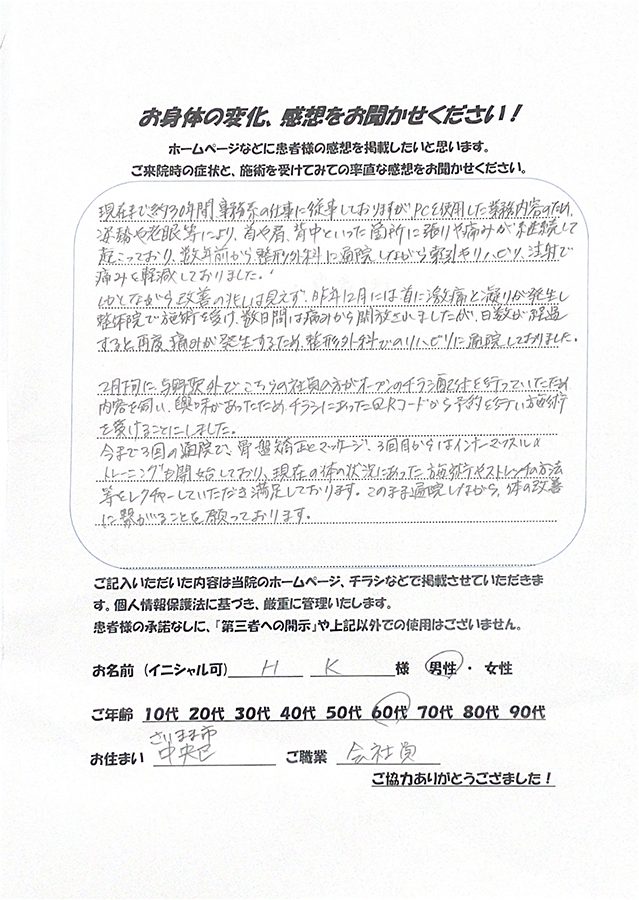 お身体の変化、感想をお聞かせください！
ホームページなどに患者様の感想を掲載したいと思います。
ご来院時の症状と、施術を受けてみての率直な感想をお聞かせください。
現在まで約30年間、事務系の仕事に従事しておりますがPCを使用した業務内容のため、
姿勢や老眼等により、首や肩、背中といった箇所に張りや痛みが継続して
起こっており、数年前から整形外科に通院しながら索引やリハビリ、注射で
痛みを軽減しておりました。
しかしながら改善の兆しは見えず、昨年12月には首に激痛と凝りが発生し
整体院で施術を受け、数日間は痛みから開放されましたが、日数が経過
すると再度、痛みが発生するため、整形外科でのリハビリに通院しておりました。
2月下旬に、与野駅外で、こちらの社員の方がオープンのチラシ配布を行っていたため
内容を伺い、興味があったためチラシにあったQRコードから予約を行い施術
を受けることにしました。
今まで3回の通院で、骨盤矯正とマッサージ、3回目からはインナーマッスルの
トレーニングも開始しており、現在の体の状況にあった施術やストレッチの方法
等をレクチャーしていただき満足しております。このまま通院しながら、体の改善
に繋がることを願っております。
ご記入いただいた内容は当院のホームページ、チラシなどで掲載させていただきま
す。個人情報保護法に基づき、厳重に管理いたします。
患者様の承諾なしに、「第三者への開示」や上記以外での使用はございません。
お名前（イニシャル可） H K 様 男性・女性
ご年齢 10代 20代 30代 40代 50代 60代 70代 80代 90代
さいたま市
お住まい 中央区 ご職業 会社員
ご協力ありがとうござました！